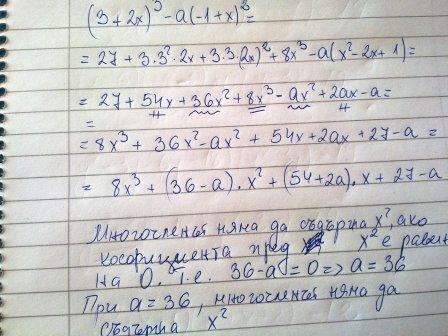 (3+2x)³-a(-1+x)²=
=27+3.3².2x+3.3.(2x)²+8x³-a(x²-2x+1)=
=27+54x+36x²+8x³-ax²+2ax-a=
=
=8x³+36x²-ax²+54x+2ax+27-a=
=8x³+(36-a).x²+(54+2a).x+27-a
Многочленът няма да съдържа x², ако
коефициента пред x² е равен
на 0. т.е. 36-a=0=>a=36
При a=36, многочленът няма да
съдържа x²